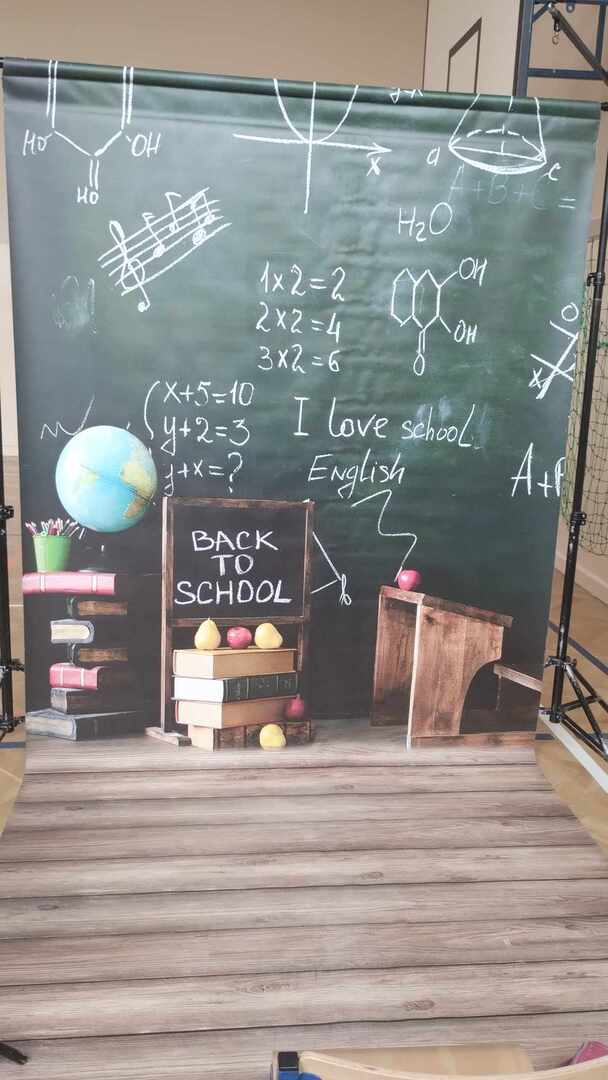 HO OH
HO
x
a c
A+B+C =
H₂O
1x2=2
2x2=4
3x2=6
OH
OH
O
x+5=10
y+2=3
y+x=?
I love school
English
BACK
TO
SCHOOL